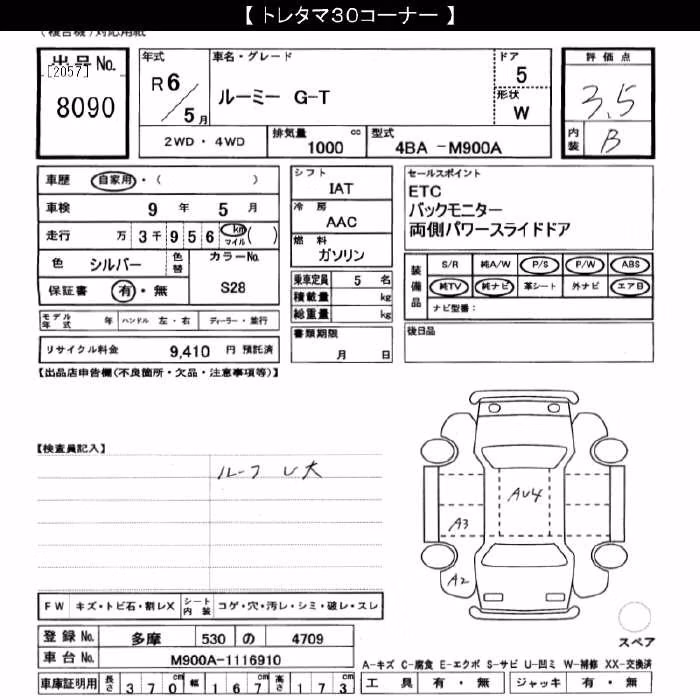 【 トレタマ３０コーナー 】
(複合機)対応用紙
出品No.
[2057]
8090
年式
R6/5月
車名・グレード
ルーミー G-T
ドア
5
形状
W
評価点
3.5
内装
B
2WD・4WD
排気量 1000 cc
型式 4BA -M900A
車歴 自家用・( )
車検 9年 5月
走行 万3千956km マイル( )
色 シルバー 色替
カラーNo. S28
保証書 有・無
シフト
IAT
冷房
AAC
燃料
ガソリン
乗車定員 5名
積載量 kg
総重量 kg
書類期限
月 日
セールスポイント
ETC
バックモニター
両側パワースライドドア
装備品
S/R 純A/W P/S P/W ABS
純TV 純ナビ 革シート 外ナビ エアB
ナビ型番:
後日品
モデル年式 年 ハンドル 左・右 ディーラー・並行
リサイクル料金 9,410 円 預託済
【出品店申告欄(不良箇所・欠品・注意事項等)】
【検査員記入】
ルーフ U大
AU4
A3
A2
スペア
FW キズ・トビ石・割レX シート内装 コゲ・穴・汚レ・シミ・破レ・スレ
登録No. 多摩 530 の 4709
車台No. M900A-1116910
車庫証明用 長さ 370cm 幅 167cm 高さ 173cm
A-キズ C-腐食 E-エクボ S-サビ U-凹ミ W-補修 XX-交換済
工具 有・無 ジャッキ 有・無